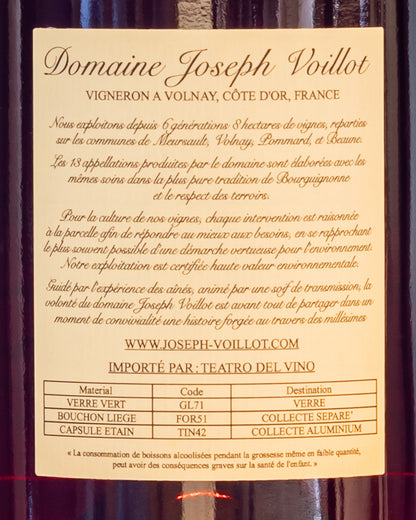 Domaine Joseph Voillot
VIGNERON A VOLNAY, CÔTE D'OR, FRANCE
Nous exploitons depuis 6 générations 8 hectares de vignes, reparties
sur les communes de Meursault, Volnay, Pommard, et Beaune.
Les 13 appellations produites par le domaine sont élaborées avec les
mêmes soins dans la plus pure tradition de Bourguignonne
et le respect des terroirs.
Pour la culture de nos vignes, chaque intervention est raisonnée
à la parcelle afin de répondre au mieux aux besoins, en se rapprochant
le plus souvent possible d'une démarche vertueuse pour l'environnement.
Notre exploitation est certifiée haute valeur environnementale.
Guidé par l'expérience des ainés, animé par une soif de transmission, la
volonté du domaine Joseph Voillot est avant tout de partager dans un
moment de convivialité une histoire forgée au travers des millésimes
WWW.JOSEPH-VOILLOT.COM
IMPORTÉ PAR : TEATRO DEL VINO
Material Code Destination
VERRE VERT GL71 VERRE
BOUCHON LIEGE FOR51 COLLECTE SEPARE'
CAPSULE ETAIN TIN42 COLLECTE ALUMINIUM
« La consommation de boissons alcoolisées pendant la grossesse même en faible quantité,
peut avoir des conséquences graves sur la santé de l'enfant. »